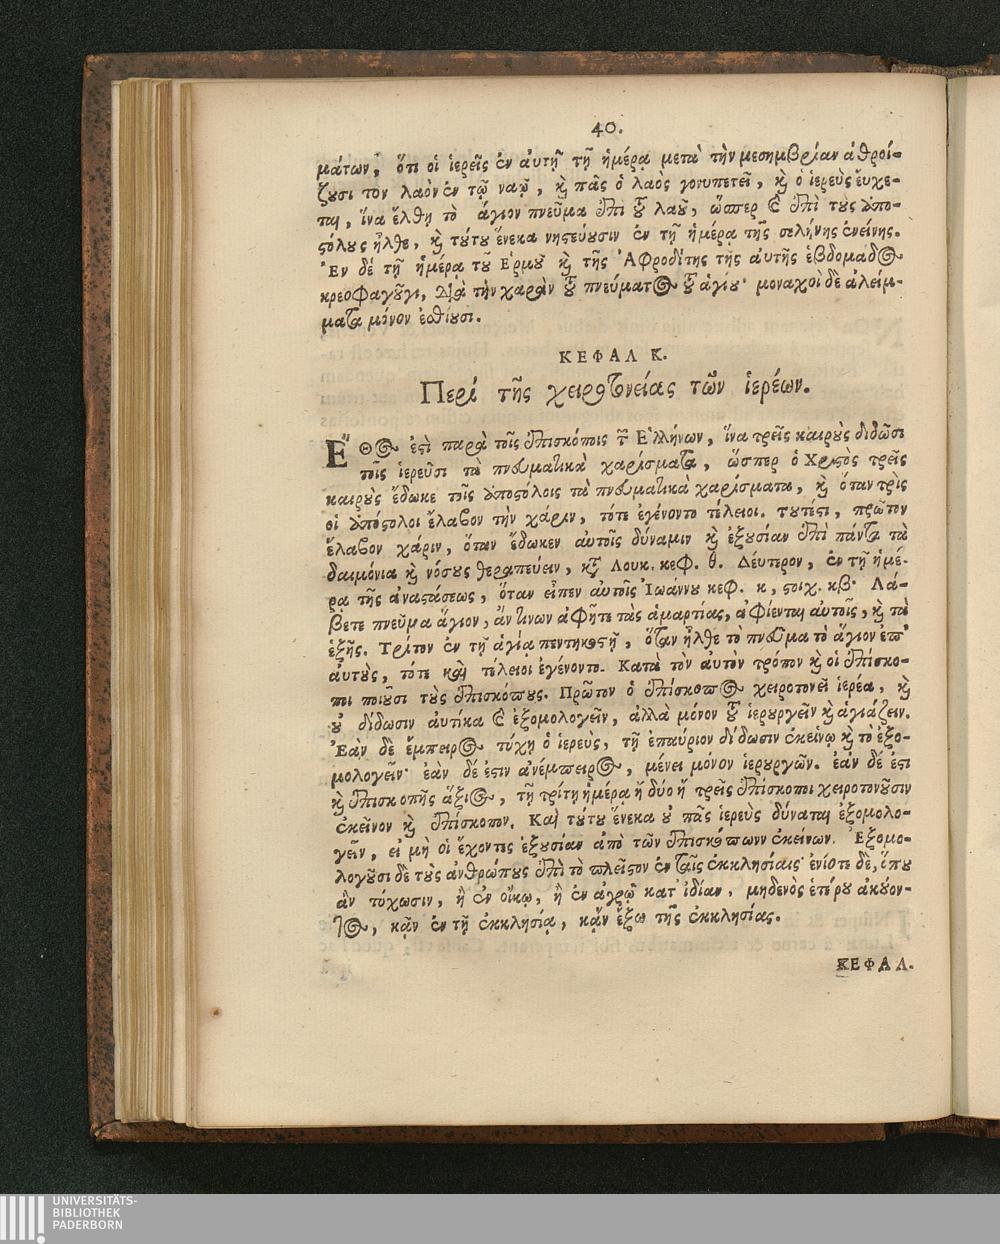 40.
μάτων, ὅτι οἱ ἱερεῖς ἐν ἀυτῇ τῇ ἡμέρᾳ μετὰ τὴν μεσημβρίαν ἀθροί-
ζουσι τὸν λαὸν ἐν τῷ ναῷ, καὶ πᾶς ὁ λαὸς γονυπετεῖ, καὶ ὁ ἱερεὺς ἔυχε-
ται, ἵνα ἔλθῃ τὸ ἅγιον πνεῦμα ἐπὶ τοῦ λαοῦ, ὥσπερ καὶ ἐπὶ τοὺς ἀπο-
στόλους ἦλθε, καὶ τούτου ἕνεκα νηστεύουσιν ἐν τῇ ἡμέρᾳ τῆς σελήνης ἐκείνης.
Ἐν δέ τῇ ἡμέρᾳ τοῦ Ερμοῦ καὶ τῆς Ἀφροδίτης τῆς ἀυτῆς ἑβδομαδος
κρεοφαγοῦσι, διὰ τὴν χαρὰν τοῦ πνεύματος τοῦ ἁγίου· μοναχοὶ δὲ ἀλείμ-
ματα μόνον ἐσθίουσι.
ΚΕΦΑΛ Κ.
Περὶ τῆς χειροτονείας τῶν ἱερέων.
ἜΘος ἐστὶ παρὰ τοῖς ἐπισκόποις τῶν Ἑλλήνων, ἵνα τρεῖς καιροὺς διδῶσι
τοῖς ἱερεῦσι τὰ πνευματικὰ χαρίσματα, ὥσπερ ὁ Χριστὸς τρεῖς
καιροὺς ἔδωκε τοῖς ἀποστόλοις τὰ πνευματικὰ χαρίσματα, καὶ ὅταν τρὶς
οἱ ἀπόστολοι ἔλαβον τὴν χάριν, τότε ἐγένοντο τέλειοι. τουτέστι, πρῶτον
ἔλαβον χάριν, ὅταν ἔδωκεν αὐτοῖς δύναμιν καὶ ἐξουσίαν ἐπὶ πάντα τὰ
δαιμόνια καὶ νόσους θεραπεύειν, κατὰ Λουκ. κεφ. θ. Δέυτερον, ἐν τῇ ἡμέ-
ρᾳ τῆς ἀναστάσεως, ὅταν εἶπεν ἀυτοῖς Ἰωάννου κεφ. κ, στιχ. κβ· Λά-
βετε πνεῦμα ἅγιον, ἄν τινων ἀφῆτε τὰς ἁμαρτίας, ἀφίενται ἀυτοῖς, καὶ τὰ
ἑξῆς. Τρίτον ἐν τῇ ἁγίᾳ πεντηκοστῇ, ὅταν ἦλθε τὸ πνεῦμα τὸ ἅγιον ἐπ'
ἀυτοὺς, τότε καὶ τέλειοι ἐγένοντο. Κατὰ τὸν αὐτὸν τρόπον καὶ οἱ ἐπίσκο-
ποι ποιοῦσι τοὺς ἐπισκόπους. Πρῶτον ὁ ἐπίσκοπος χειροτονεῖ ἱερέα, καὶ
οὐ δίδωσιν ἀυτίκα καὶ ἐξομολογεῖν, ἀλλὰ μόνον τοῦ ἱερουργεῖν καὶ ἁγιάζειν.
Ἐὰν δὲ ἔμπειρος τύχῃ ὁ ἱερεὺς, τῇ ἐπαύριον δίδωσιν ἐκείνῳ καὶ τὸ ἐξο-
μολογεῖν· ἐὰν δέ ἐστιν ἀνέμπειρος, μένει μόνον ἱερουργῶν. ἐὰν δέ ἐστι
καὶ ἐπισκοπῆς ἄξιος, τῇ τρίτῃ ἡμέρᾳ ἢ δύο ἢ τρεῖς ἐπίσκοποι χειροτονοῦσιν
ἐκεῖνον καὶ ἐπίσκοπον. Καὶ τούτου ἕνεκα οὐ πᾶς ἱερεὺς δύναται ἐξομολο-
γεῖν, εἰ μὴ οἱ ἔχοντες ἐξουσίαν ἀπὸ τῶν ἐπισκόπωνν ἐκείνων. Ἐξομο-
λογοῦσι δὲ τοὺς ἀνθρώπους ἐπὶ τὸ πλεῖστον ἐν ταῖς ἐκκλησίαις· ἐνίοτε δὲ, ὅπου
ἂν τύχωσιν, ἢ ἐν οἴκῳ, ἢ ἐν ἀγρῷ κατ' ἰδίαν, μηδενὸς ἑτέρου ἀκούον-
τος, κᾂν ἐν τῇ ἐκκλησίᾳ, κᾂν ἔξω τῆς ἐκκλησίας.
ΚΕΦΑΛ.
UNIVERSITÄTS-
BIBLIOTHEK
PADERBORN